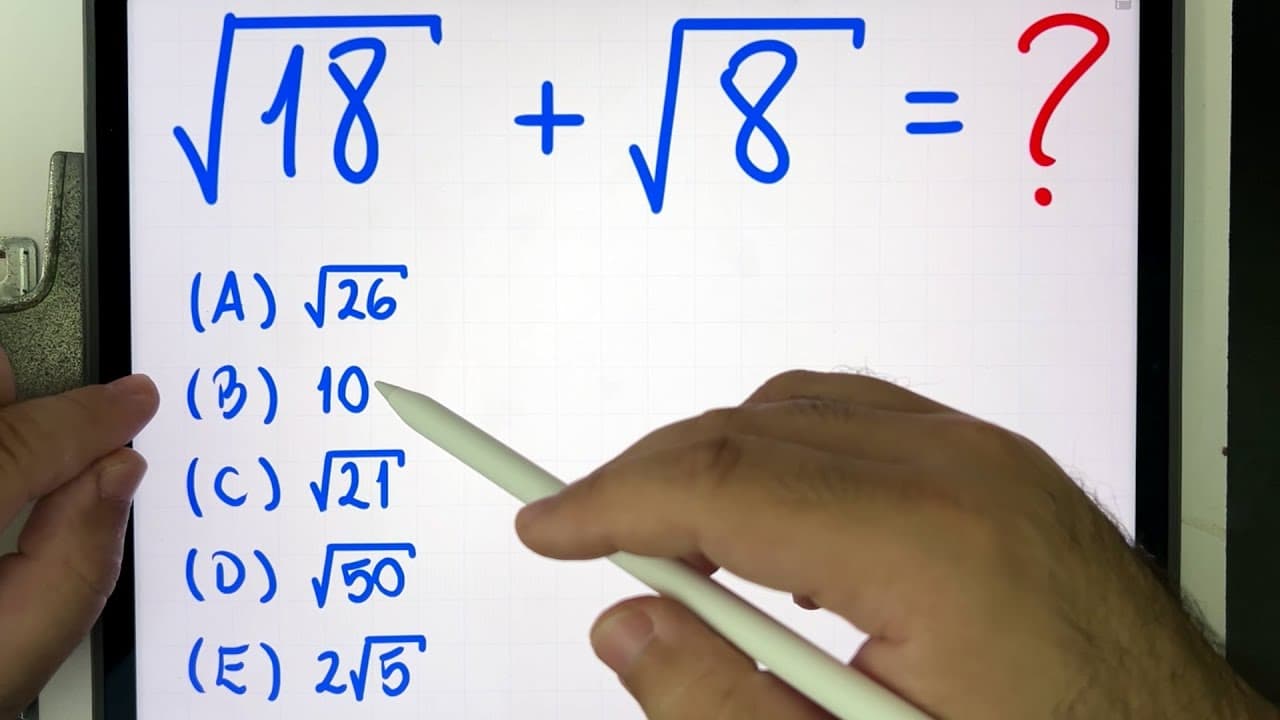 √18 + √8 = ?
(A) √26
(B) 10
(C) √21
(D) √50
(E) 2√5